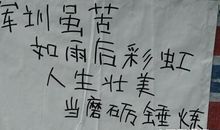 军训虽苦
如雨后彩虹
人生壮美
当磨砺锤炼